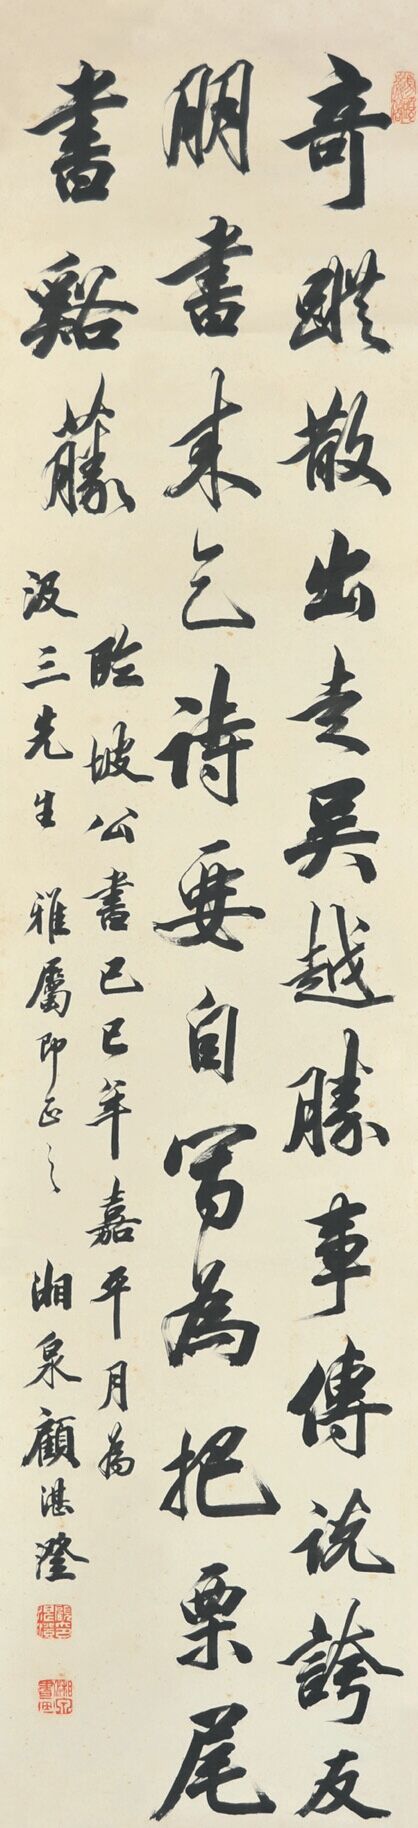 奇蹤散出走吳越勝事傳說誇友
朋書來乞詩要自寫為把栗尾
書谿藤
臨坡公書己巳年嘉平月為
汲三先生 雅屬即正之 湘泉顧湛澄